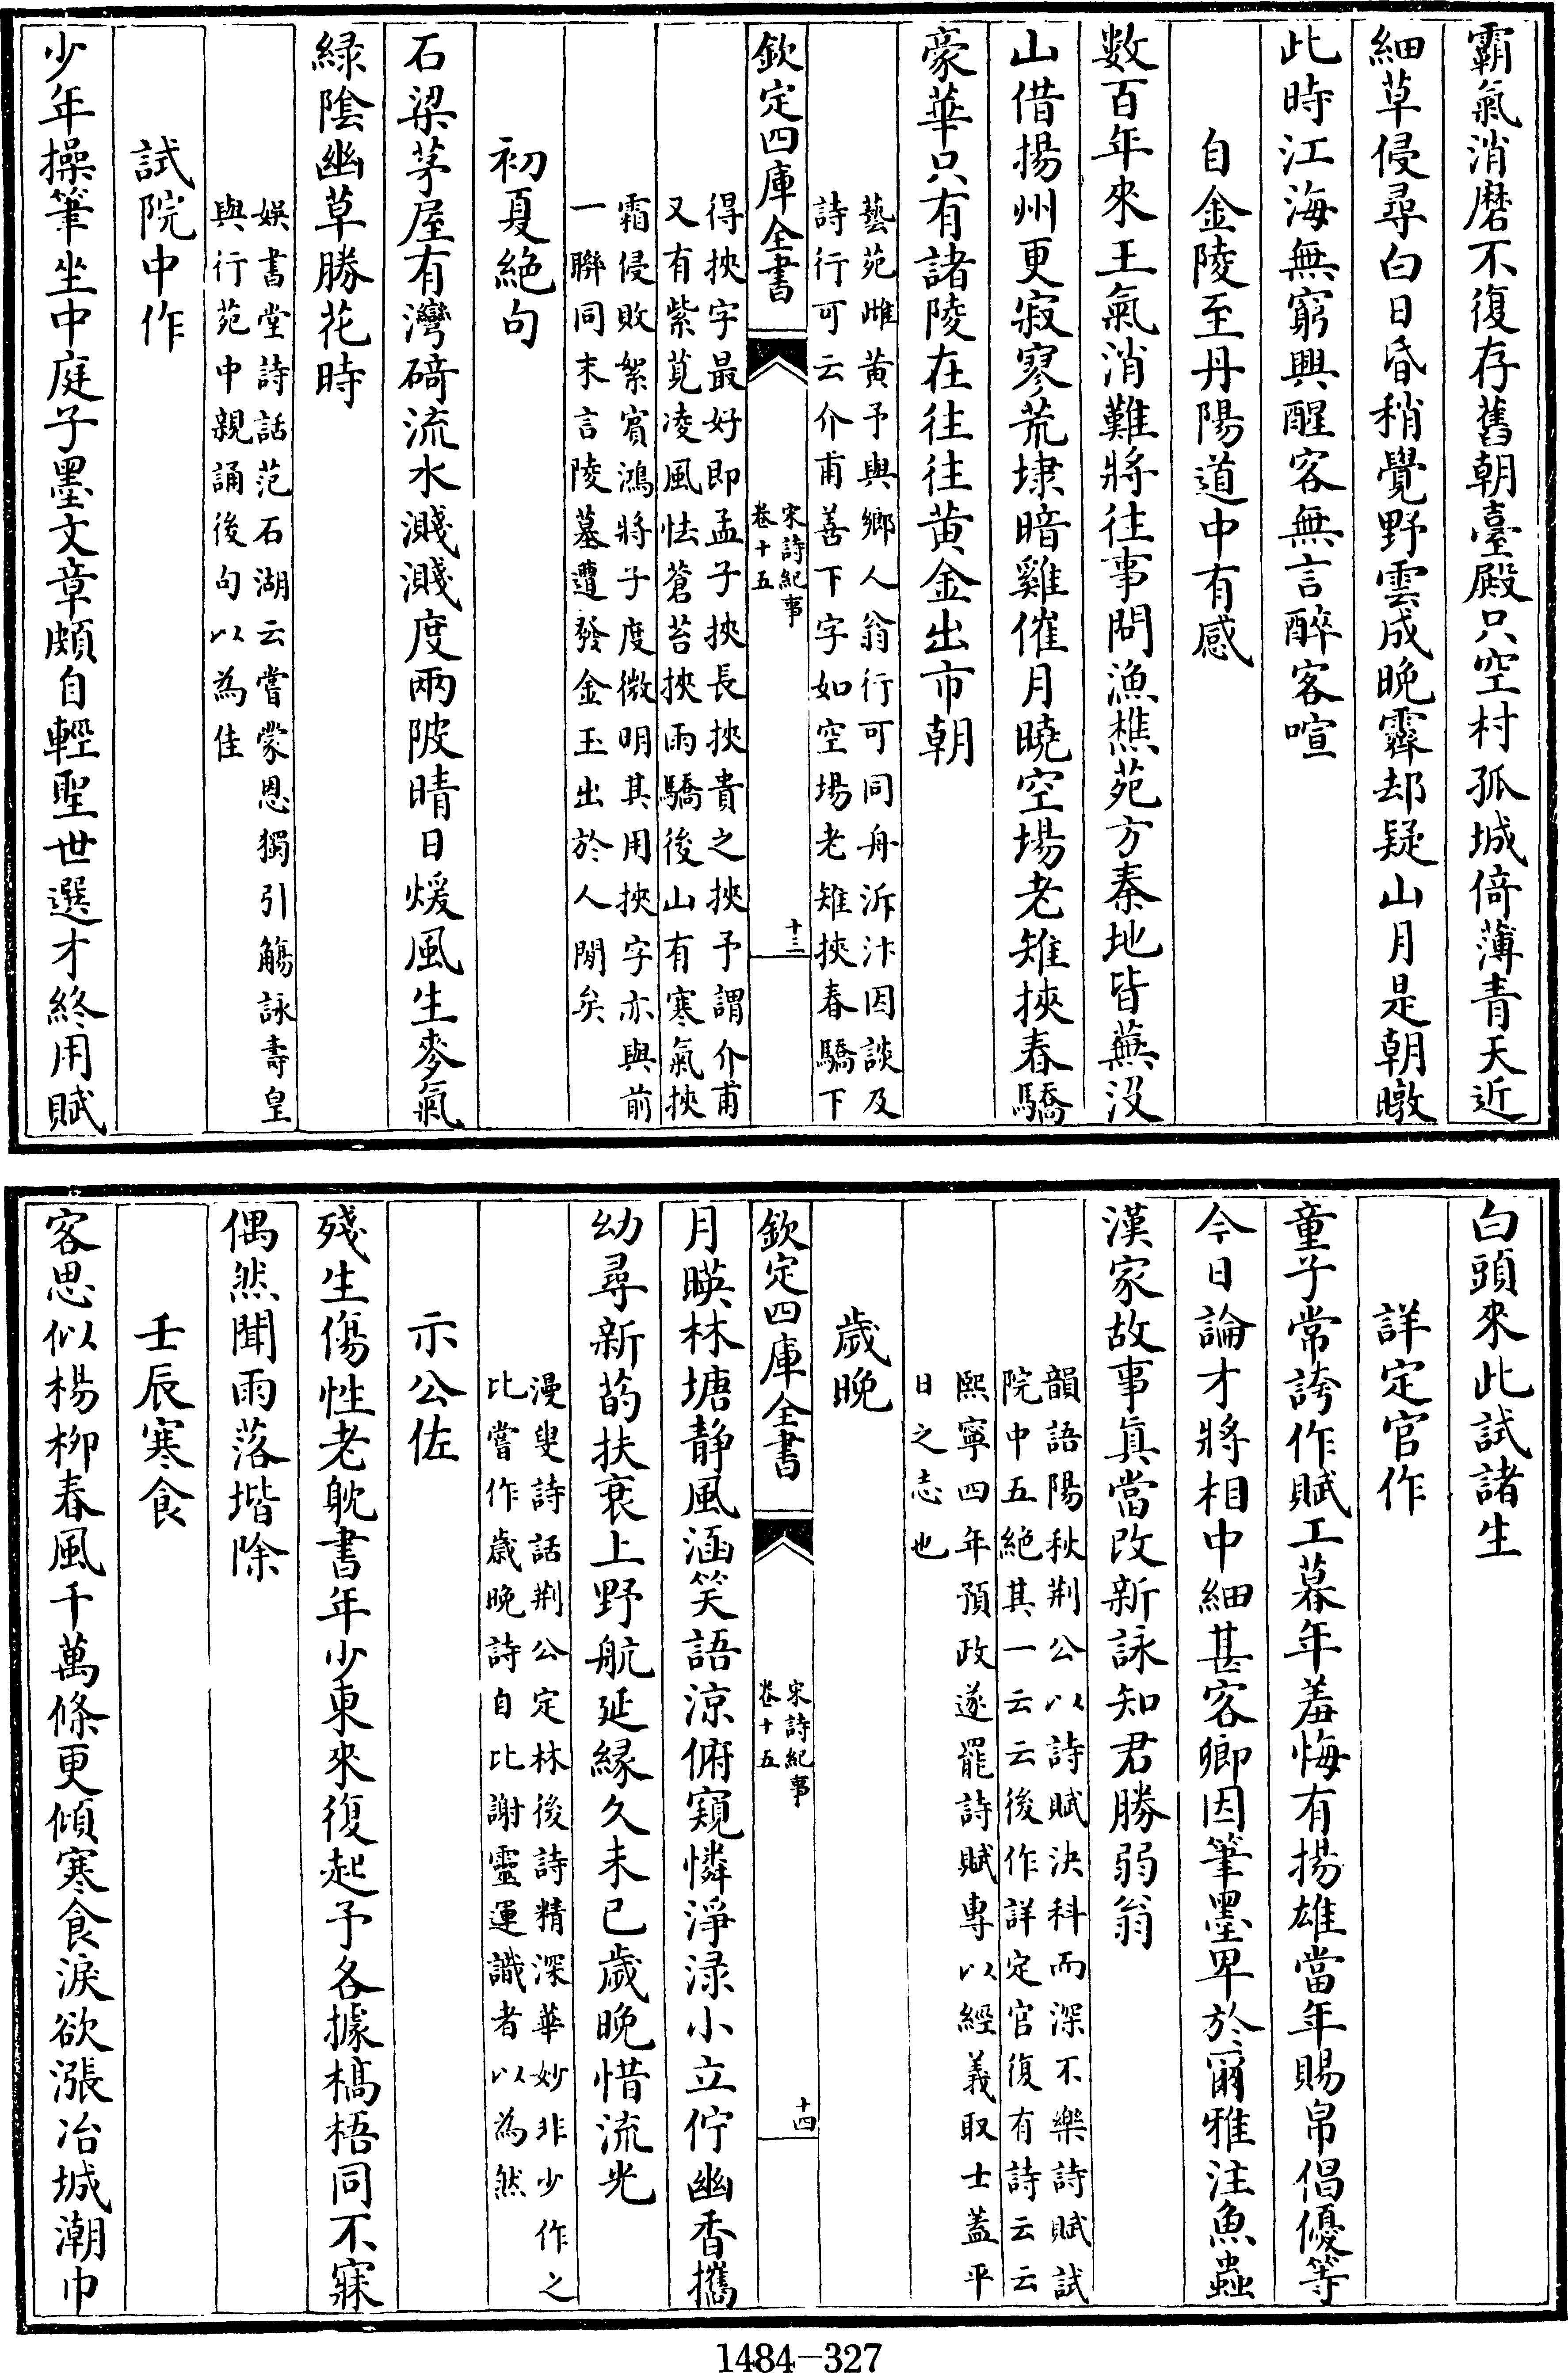 霸氣消磨不復存舊朝臺殿只空村孤城倚薄青天近
細草侵尋白日昏稍覺野雲成晚霽却疑山月是朝暾
此時江海無窮興醒客無言醉客喧
自金陵至丹陽道中有感
數百年來王氣消難將往事問漁樵苑方秦地皆蕪沒
山借揚州更寂寥荒埭暗雞催月曉空場老雉挾春驕
豪華只有諸陵在往往黄金出市朝
藝苑雌黄予與鄉人翁行可同舟泝汴因談及
詩行可云介甫善下字如空場老雉挾春驕下
欽定四庫全書
宋詩紀事
卷十五
十三
得挾字最好即孟子挾長挾貴之挾予謂介甫
又有紫莧凌風怯蒼苔挾雨驕後山有寒氣挾
霜侵敗絮賓鴻將子度微明其用挾字亦與前
一聯同末言陵墓遭發金玉出於人間矣
初夏絶句
石梁茅屋有灣碕流水濺濺度兩陂晴日煖風生麥氣
緑陰幽草勝花時
娱書堂詩話范石湖云嘗蒙恩獨引觴詠壽皇
與行苑中親誦後句以為佳
試院中作
少年操筆坐中庭子墨文章頗自輕聖世選才終用賦
白頭來此試諸生
詳定官作
童子常誇作賦工暮年羞悔有揚雄當年賜帛倡優等
今日論才將相中細甚客卿因筆墨卑於爾雅注魚蟲
漢家故事真當改新詠知君勝弱翁
韻語陽秋荆公以詩賦決科而深不樂詩賦試
院中五絶其一云云後作詳定官復有詩云云
熙寧四年預政遂罷詩賦專以經義取士蓋平
日之志也
歲晚
欽定四庫全書
宋詩紀事
卷十五
十四
月暎林塘静風涵笑語涼俯窺憐淨渌小立佇幽香攜
幼尋新菂扶衰上野航延緣久未已歲晚惜流光
漫叟詩話荆公定林後詩精深華妙非少作之
比嘗作歲晚詩自比謝靈運識者以為然
示公佐
殘生傷性老耽書年少東來復起予各據槁梧同不寐
偶然聞雨落堦除
壬辰寒食
客思似楊柳春風千萬條更傾寒食淚欲漲冶城潮巾
1484-327